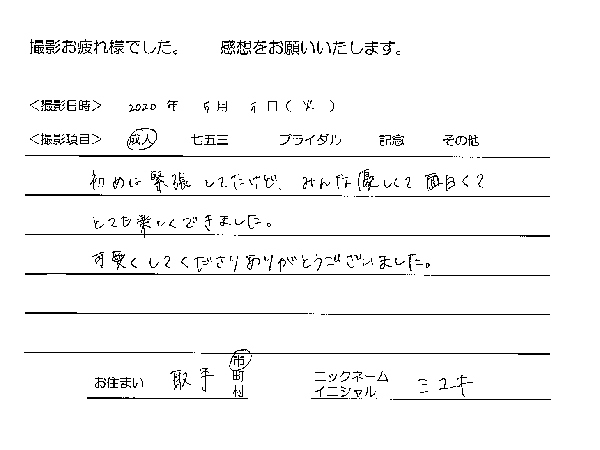 撮影お疲れ様でした。 感想をお願いいたします。
<撮影日時> 2020 年 5月 5日(火)
<撮影項目> 成人 七五三 ブライダル 記念 その他
初めは緊張してたけど、みんな優しくて面白くて
とても楽しくできました。
可愛くしてくださりありがとうございました。
お住まい 取手 市町村 ニックネーム イニシャル ミユキ